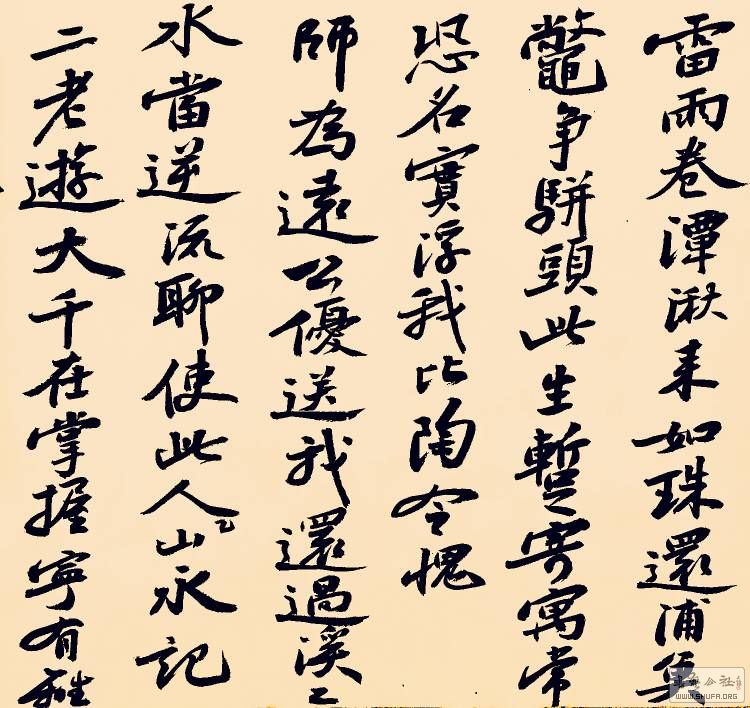 雷雨卷潭湫来如珠還浦魚
鼈争駢頭此生暫寄寓常
恐名實浮我比陶令愧
師為遠公優送我還過溪〻
水當逆流聊使此人山永記
二老遊大千在掌握寧有離
WWW.SHUFA.ORG